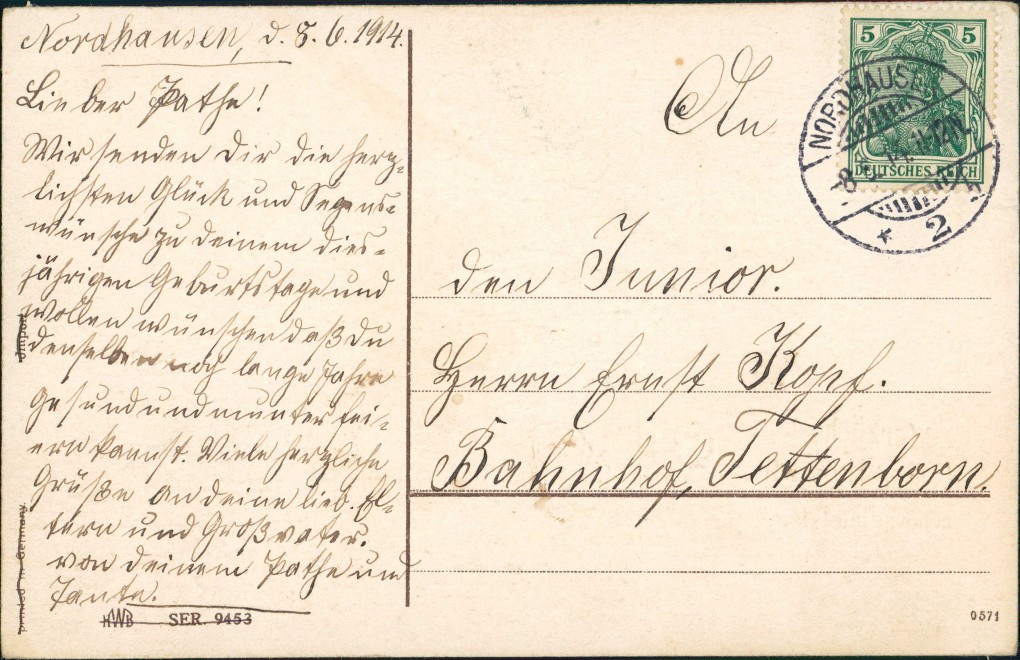 Nordhausen, d. 8. 6. 1914.
Lieber Pathe!
Wir senden Dir die herz-
lichsten Glück und Segens-
wünsche zu deinem dies-
jährigen Geburtstage und
wollen wünschen daß Du
denselben noch lange Jahre
gesund und munter fei-
ern kannst. Viele herzliche
Grüße an deine lieb. El-
tern und Großvater.
von deinem Pathe und
Tante.
Import
printed in Germany.
HWB SER. 9453
An
den Junior.
Herrn Ernst Kopf.
Bahnhof, Tettenborn.
5 5
DEUTSCHES REICH
NORDHAUSEN
8. 14. 11-12N.
* 2
0571